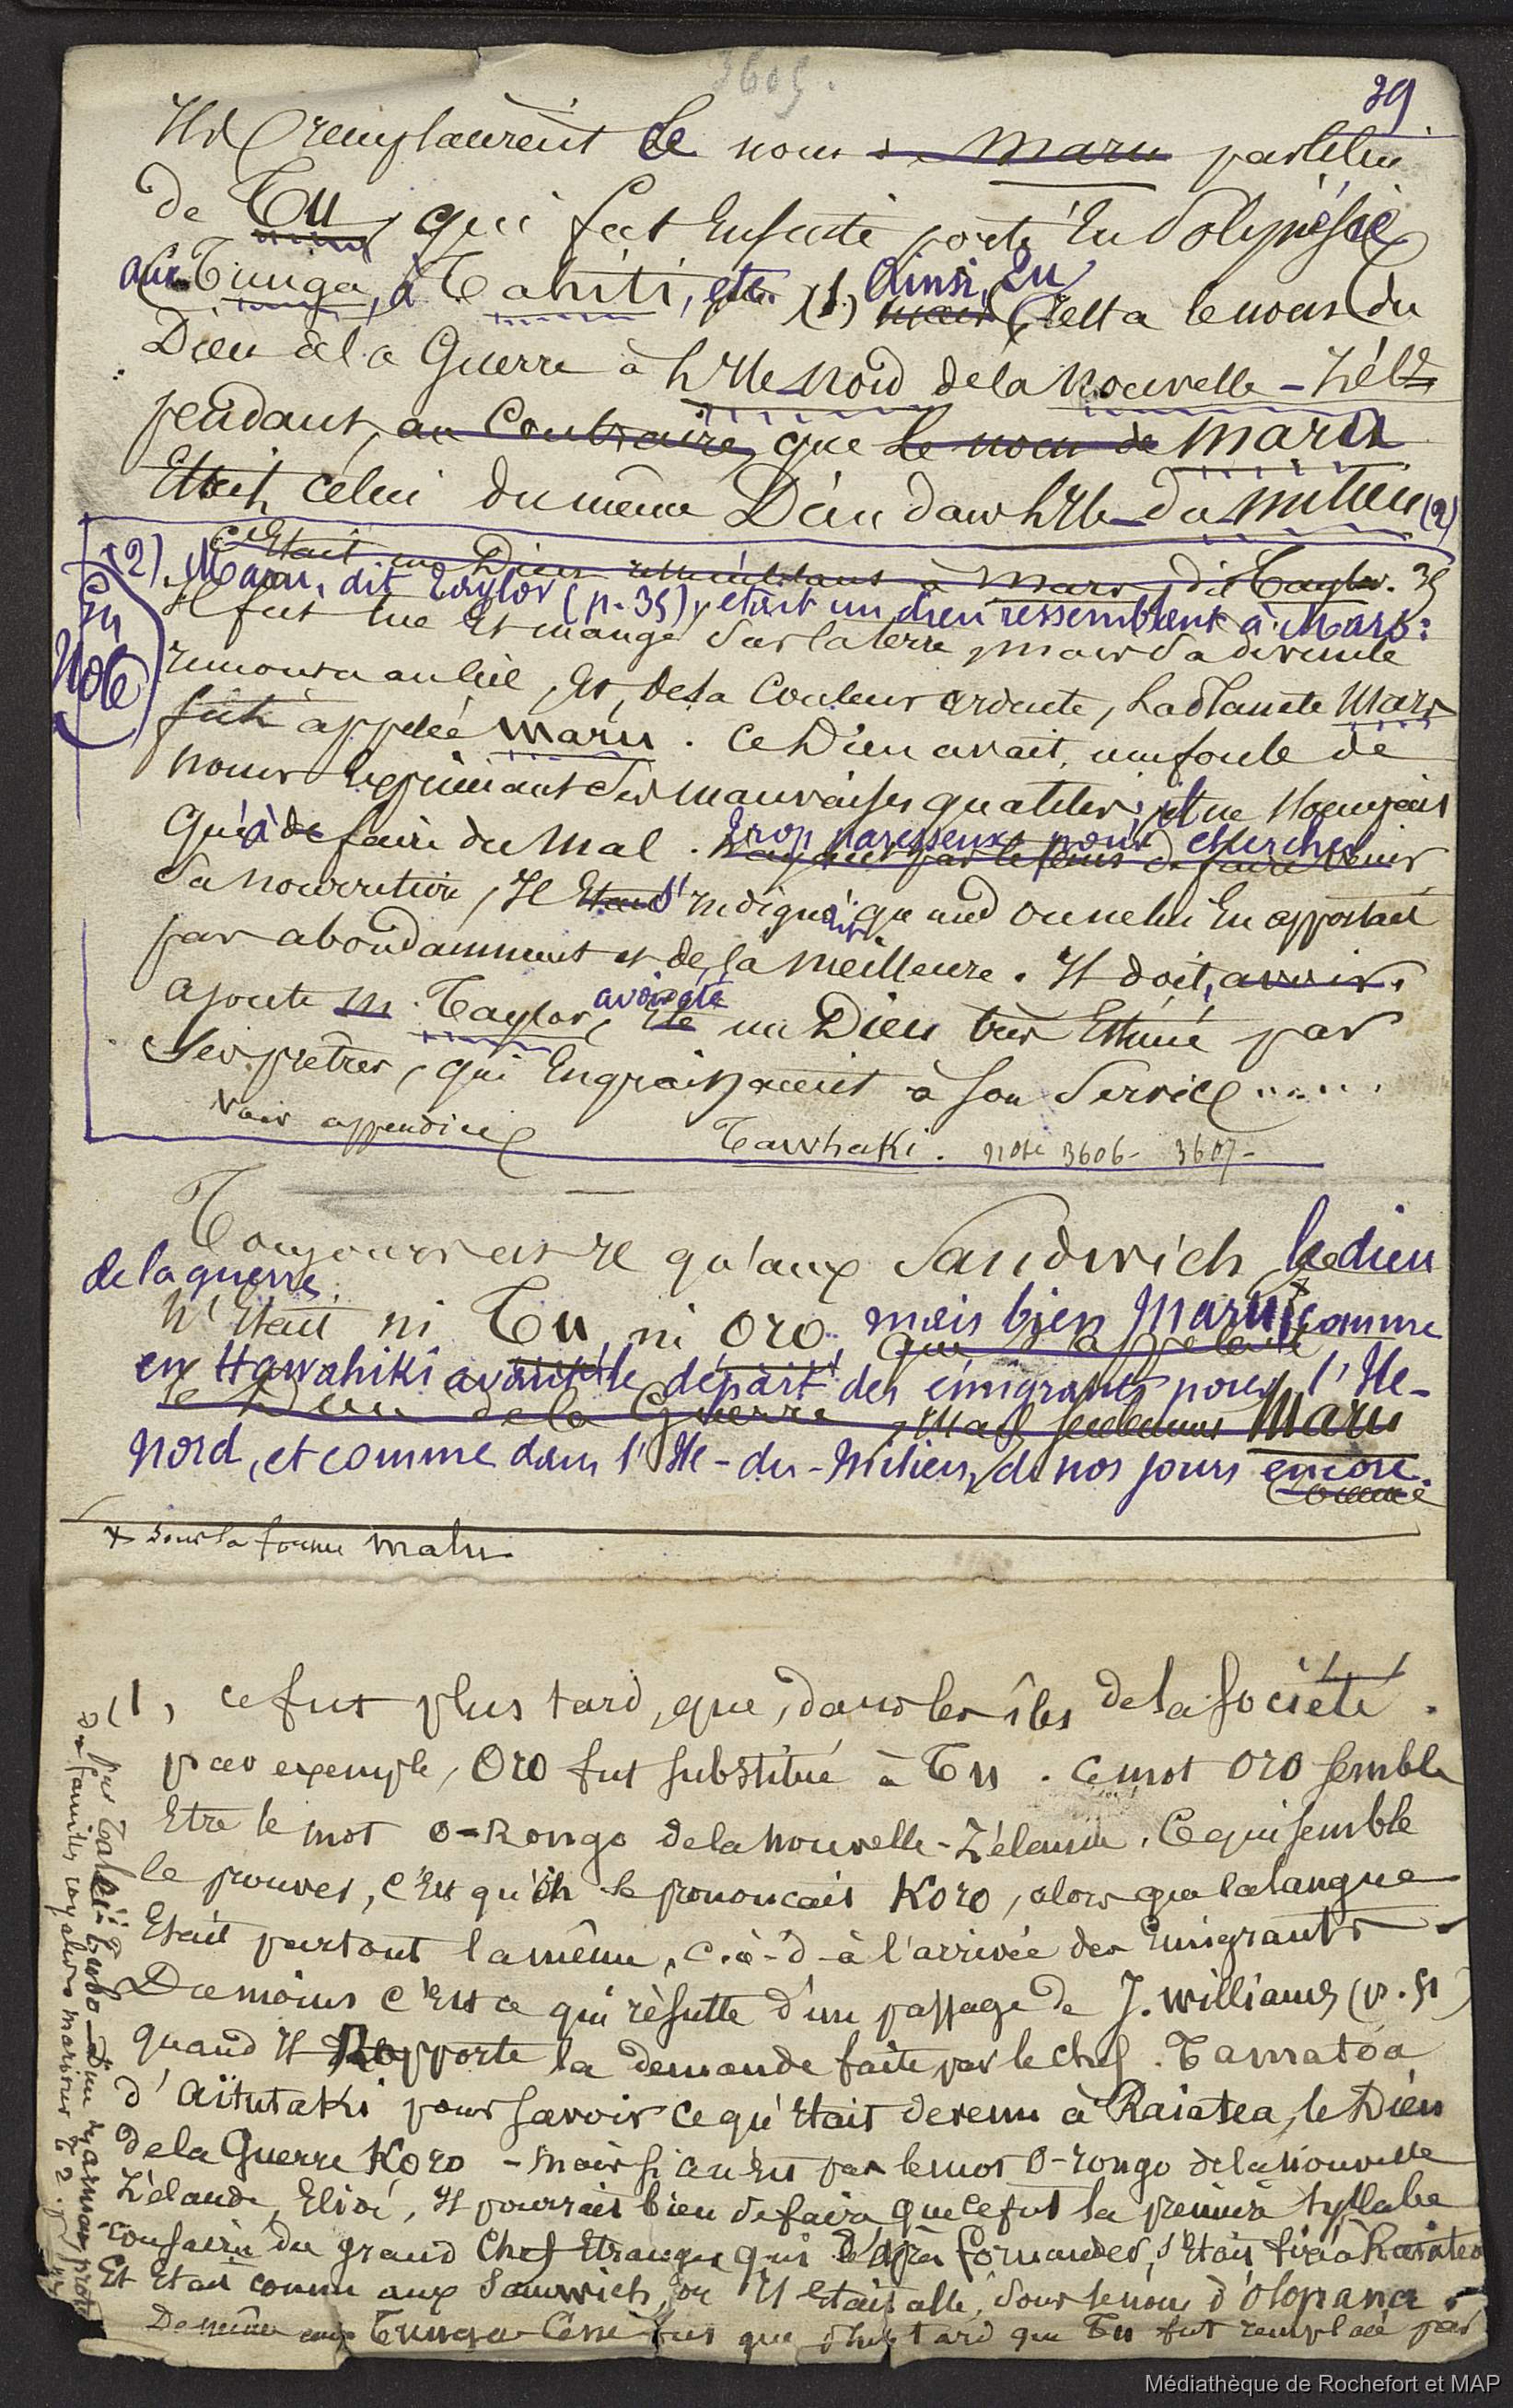 3605.
39
Ils remplacèrent le nom de Maru par celui
de Tu, qui fut ensuite porté en Polynésie
aux Tunga, à Tahiti, etc. (1) Ainsi, Tu
mais resta le nom du
Dieu de la Guerre à l'Ile nord de la Nouvelle-Zélde
pendant, au contraire, que le nom de Maru
était celui du même Dieu dans l'Ile-du-milieu (2)
C'était un Dieu ressemblant à Mars, dit Taylor. 35
(2) Maru, dit Taylor (p. 35), était un dieu ressemblant à Mars:
En Note
Il fut tué et mangé sur la terre, mais sa divinité
remonta au ciel, et, de sa couleur ardente, la planète Mars
fut appelée Maru. Ce Dieu avait une foule de
noms exprimant ses mauvaises qualités; il ne songeait
qu'à de faire du mal. trop paresseux pour chercher
sa nourriture, Il était s'indignait quand on ne lui en apportait
pas abondamment et de la meilleure. Il doit, avoir,
ajoute M. Taylor, avoir été un Dieu très estimé par
ses prêtres, qui engraissaient à son service......
Voir appendice Tawhaki. note 3606 - 3607 -
Toujours est-il qu'aux Sandwich le dieu
de la guerre
n'était ni Tu, ni Oro, mais bien Maru x comme
que s'appelait
en Hawahiki avant le départ des émigrants pour l'Ile-
le Dieu de la Guerre, mais seulement Maru
Nord, et comme dans l'Ile-du-Milieu, de nos jours encore.
comme
x sous la forme Malu
(1, ce fut plus tard, que, dans les îles de la Société.
par exemple, Oro fut substitué à Tu. ce mot Oro semble
Etre le mot O-Rongo de la Nouvelle-Zélande. Ce qui semble
le prouver, c'est qu'on le prononçait Koro, alors que la langue
Etait partout la même, c.à-d-à l'arrivée des Emigrants
Du moins c'est ce qui résulte d'un passage de J. Williams (p. 51)
quand Il Rapporte la demande faite par le chef. Tamatoa
d'Aïtutaki pour savoir ce qu'était devenu à Raiatea, le Dieu
de la Guerre Koro - mais si ce n'est pas le mot O-rongo de la Nouvelle
Zélande, Elidé, Il pourrait bien se faire que ce fut la première syllabe
du grand Chef Etranger qui d'après Fornander, s'était fixé à Raiatea
Et était connu aux Sandwich, où Il était allé, sous le nom d'Olopana
De même aux Tunga Ce ne fut que plus tard que Tu fut remplacé par
par Tali-ai-Tubo - Dieu de la guerre, protecteur
des familles royales mariner T 2. p.
Médiathèque de Rochefort et MAP